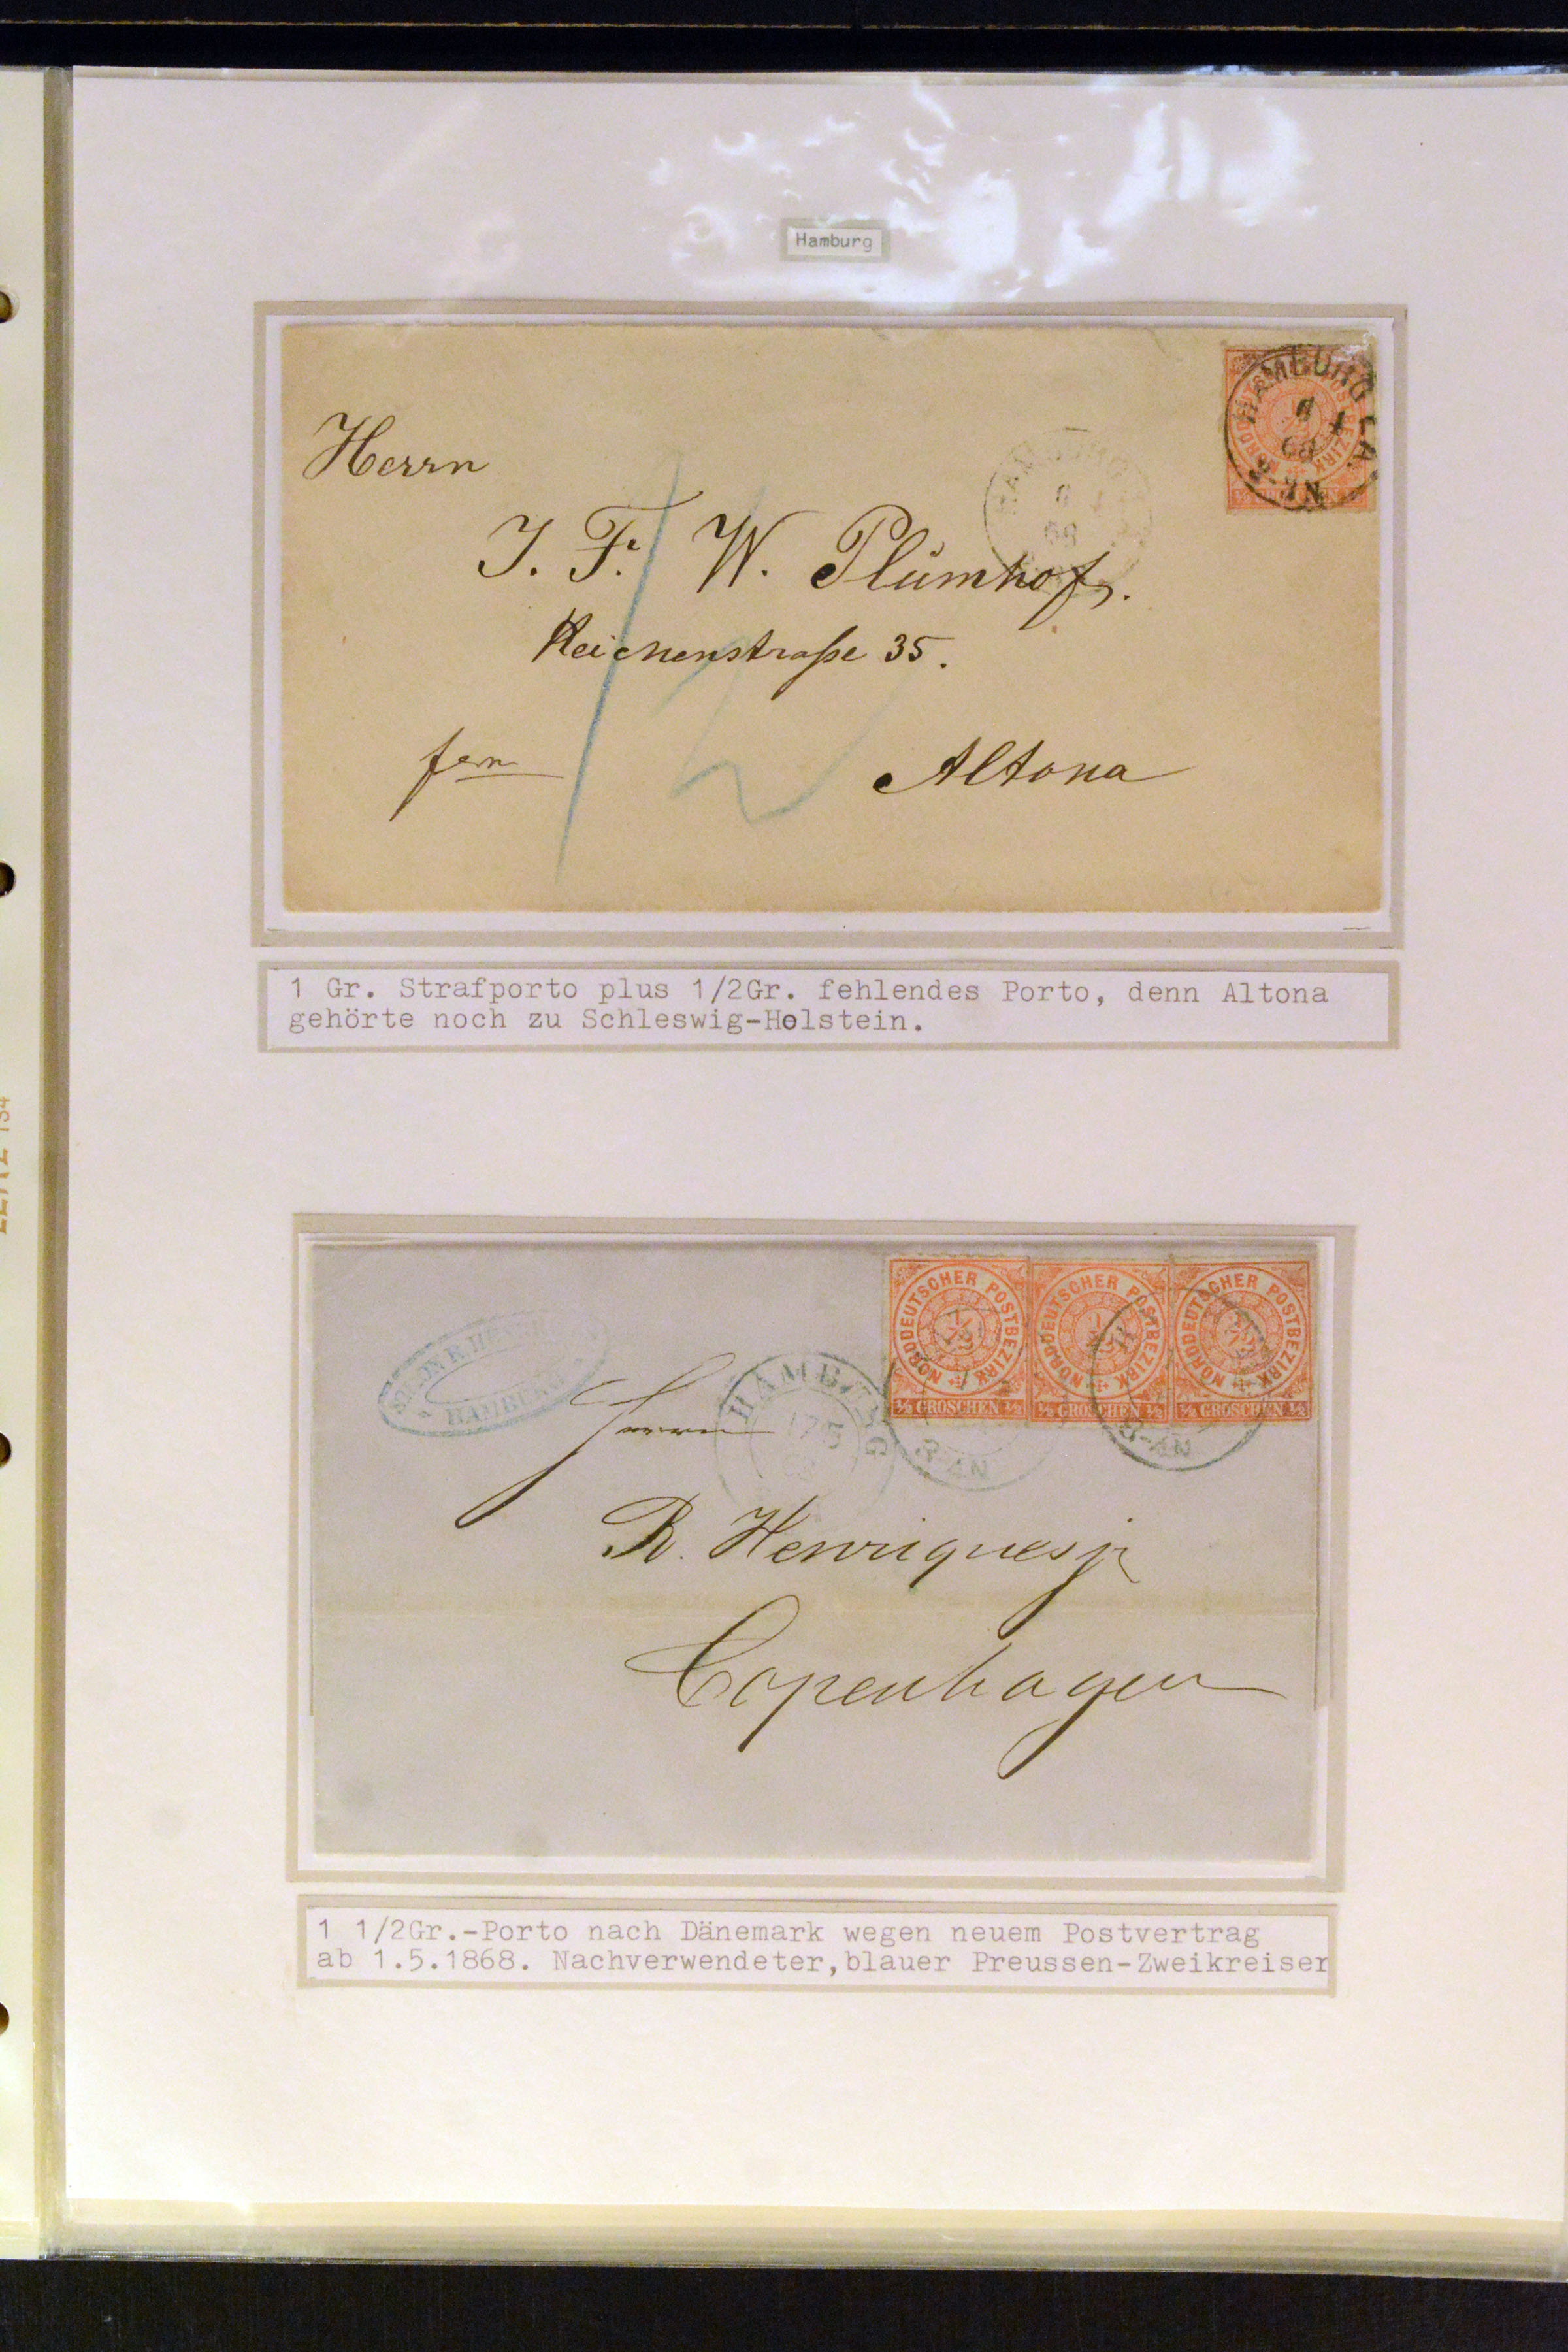 Hamburg
HAMBURG I.A.
6 1
68
2-3N
Herrn
J. F. W. Plümhof.
Reichenstraße 35.
Altona
1 Gr. Strafporto plus 1/2Gr. fehlendes Porto, denn Altona
gehörte noch zu Schleswig-Holstein.
NORDDEUTSCHER POSTBEZIRK
1/2 GROSCHEN 1/2
NORDDEUTSCHER POSTBEZIRK
1/2 GROSCHEN 1/2
NORDDEUTSCHER POSTBEZIRK
1/2 GROSCHEN 1/2
HAMBURG
HAMBURG
17 5
Herrn
R. Henriques jr
Copenhagen
1 1/2Gr.-Porto nach Dänemark wegen neuem Postvertrag
ab 1.5.1868. Nachverwendeter,blauer Preussen-Zweikreiser